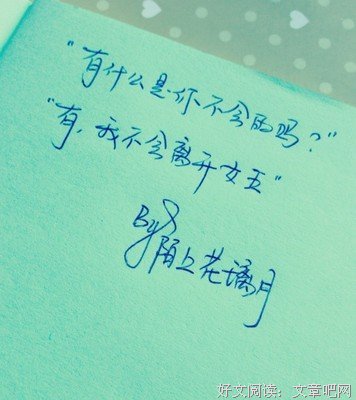 "有什么是你不会的吗？"
"有，我不会离开女王"
By
陌上花璃月
好文阅读：文章吧网